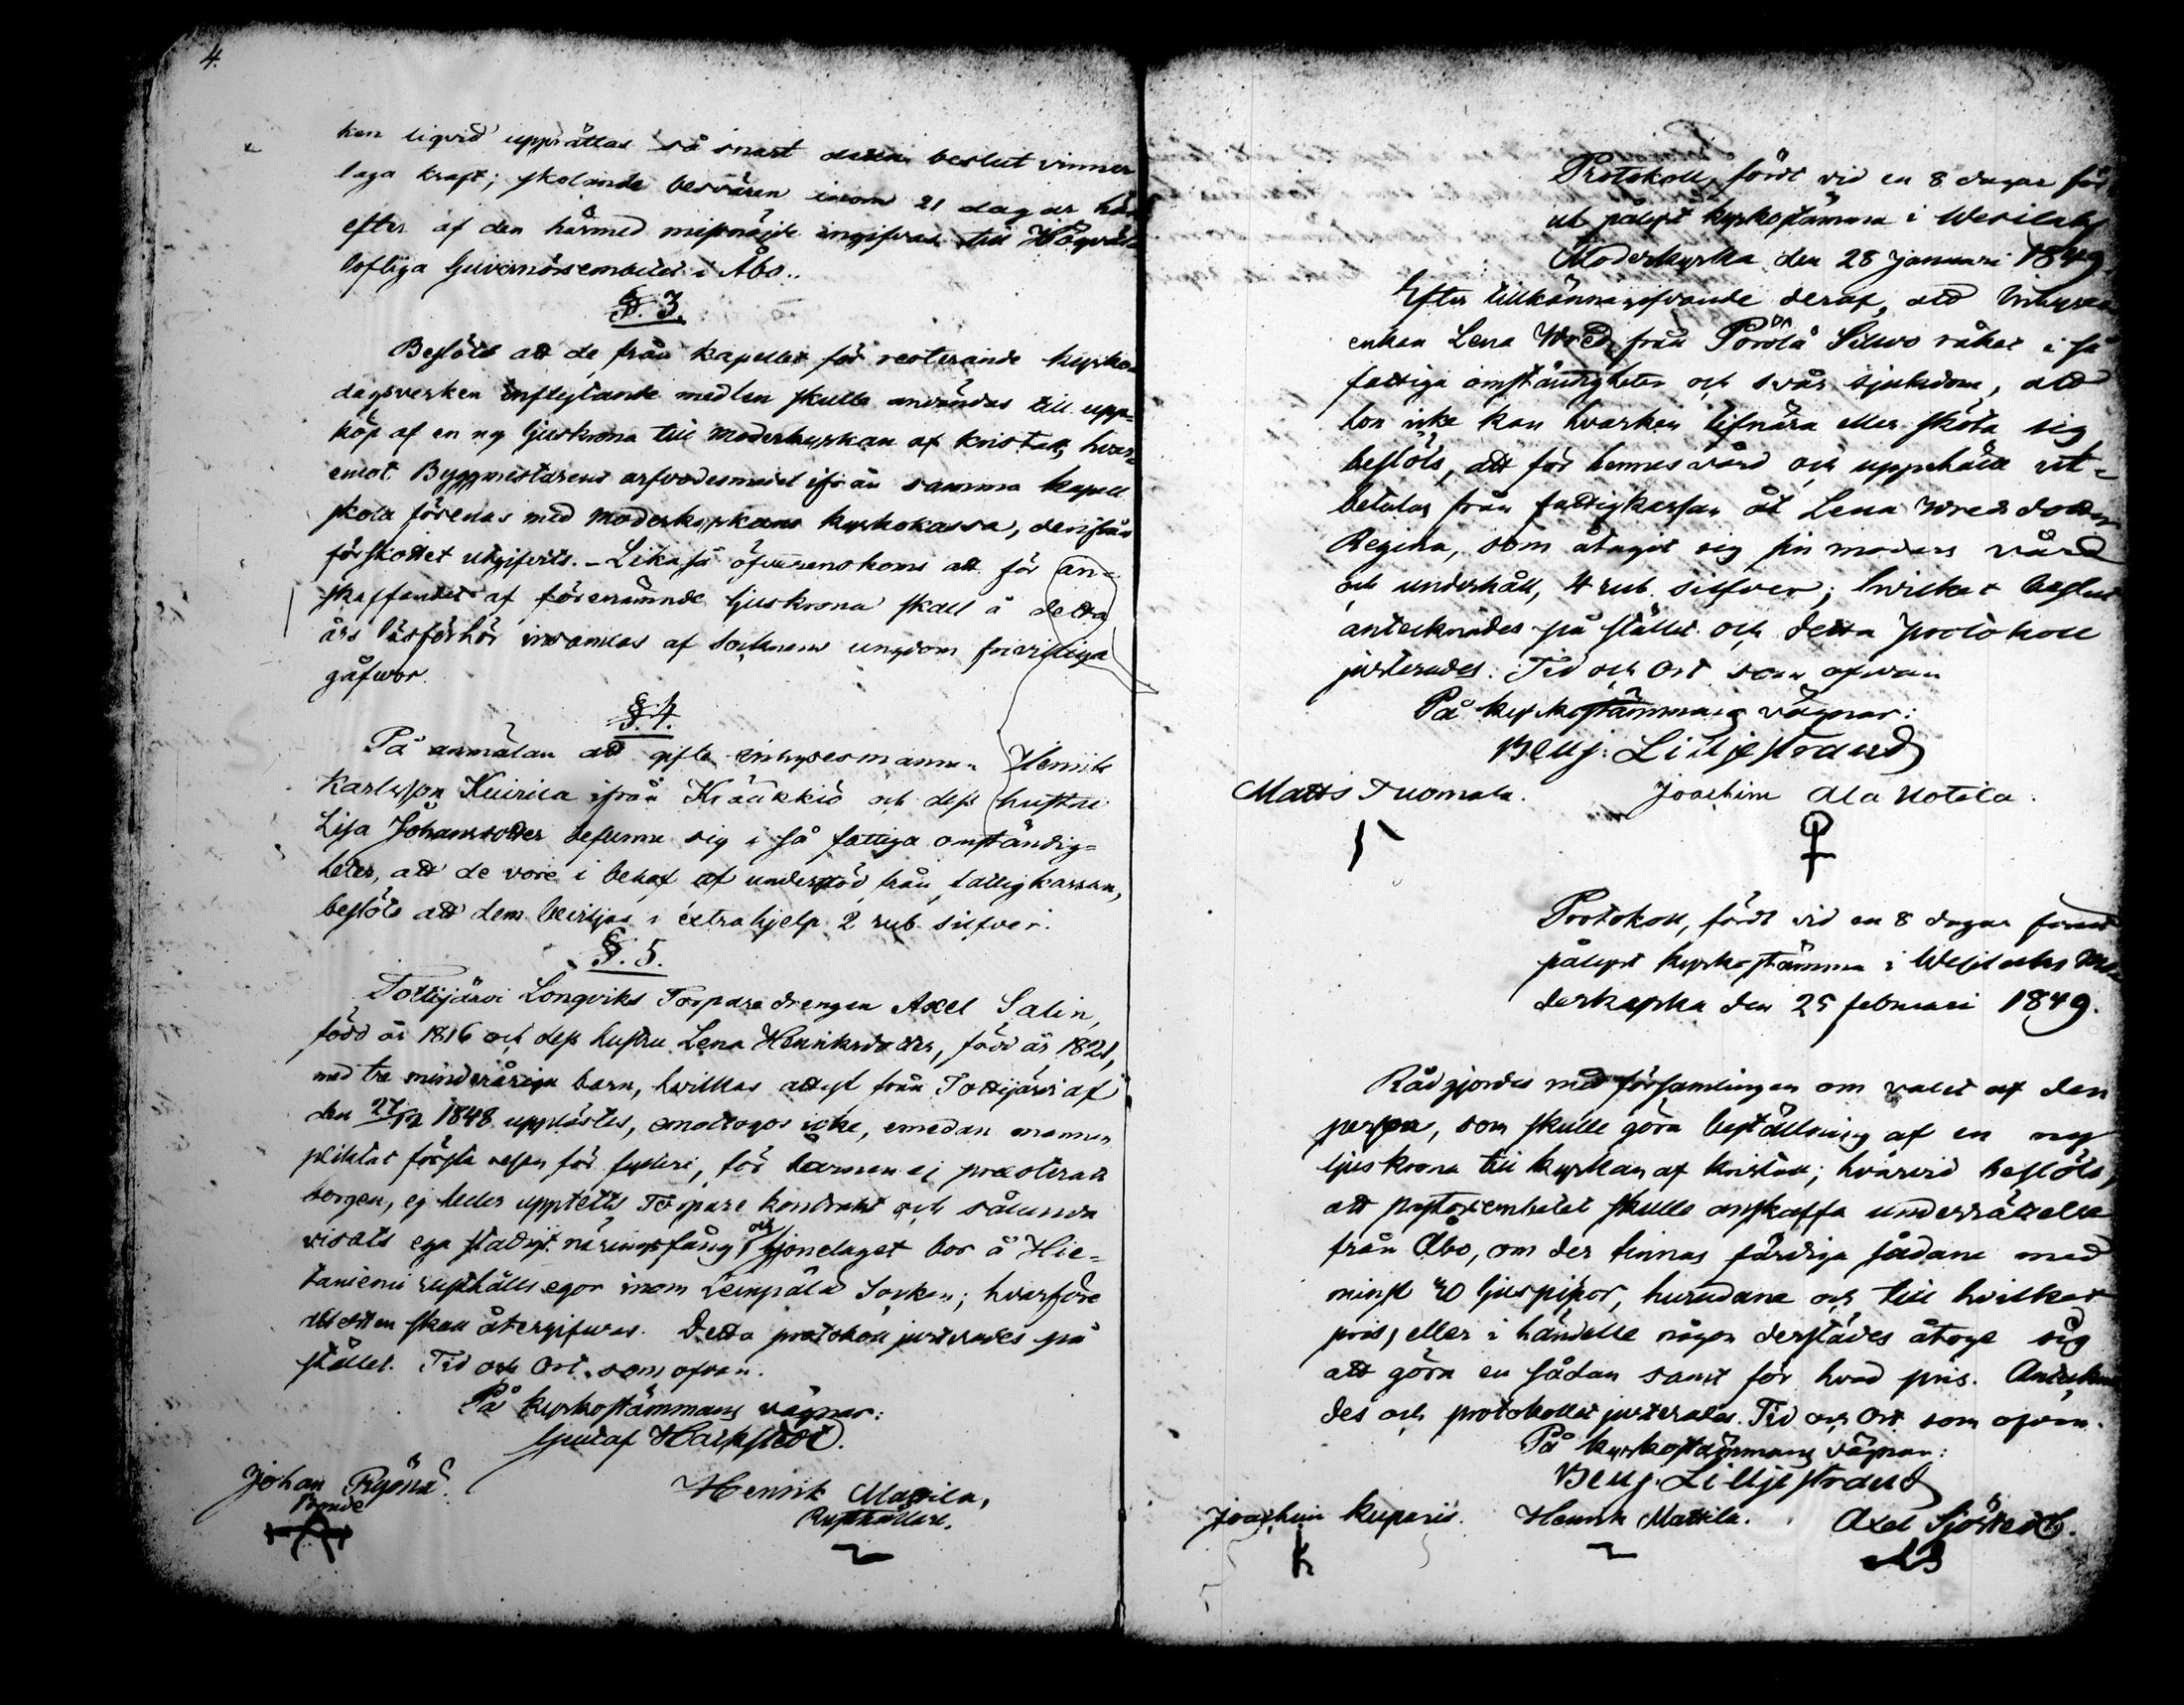 4.
ken liqvid upprättas så snart detta beslut vinner
laga kraft; skolande besvären inom 21 dagar här
efter af den härmed missnöjde ingifvas till Högväl
lofliga Guvernörsembetet i Åbo.
§. 3.
Beslöts att de från kapellet för resterande kyrko-
dagsverken inflytande medlen skulle användas till upp-
köp af en ny ljuskrona till Moderkyrkan af kristall, hvar-
emot Byggmestarens arfvodesmedel ifrån samma kapell
skola förenas med Moderkyrkans kyrkokassa, derifrån
förskottet utgifvits. - Likaså öfverenskoms att för an-
skaffandet af förenämnde ljuskrona skall å detta
års läsförhör insamlas af socknens ungdom frivilliga
gåfvor.
§. 4.
På anmälan att gifte inhysesmannen Henrik
Karlsson Keirila ifrån Krääkkiö och dess hustru
Lisa Johansdotter befunne sig i så fattiga omständig=
heter, att de vore i behof af understöd från fattigkassan,
beslöts att dem beviljas i extra hjelp 2 rub. silfver.
§. 5.
Tottijärvi Lonqviks Torpare drengen Axel Salin,
född år 1816 och dess hustru Lena Henriksdotter, född år 1821,
med tre minderåriga barn, hvilkas attest från Tottijärvi af
den 27/12 1848 upplästes, emottogos icke, emedan mannen
pliktat första resan för fylleri, för barnen ej presterats
borgen, ej heller uppteets Torpare kontrakt och sålunda
visats ega stadigt näringsfång och hjonelaget bor å Hie-
taniemi rusthålls egor inom Lempälä Socken; hvarföre
attesten skall återgifvas. Detta protokoll justerades på
stället. Tid och Ort som ofvan.
På kyrkostämmans vägnar:
Gustaf Hackstedt.
Johan Ryönä
Bonde
Henrik Mattila,
Rusthållare.
Protokoll, fördt vid en 8 dagar för
ut pålyst kyrkostämma i Wesilaks
Moderkyrka den 28 Januari 1849.
Efter tillkännagifvande deraf, att Inhyses
enkan Lena Wred från Pöröla Silwo råkat i så
fattiga omständigheter och svår sjukdom, att
hon icke kan hvarken lifnära eller sköta sig
beslöts, att för hennes vård och uppehälle ut=
betalas från fattigkassan åt Lena Wreds dotter
Regina, som åtagit sig sin moders vård
och underhåll, 4 rub. silfver; hvilket beslut
antecknades på stället och detta protokoll
justerades. Tid och Ort som ofvan
På kyrkostämmans vägnar:
Benj. Lilljestrand
Matts Tuomala. Joachim Ala Uotila.
Protokoll, fördt vid en 8 dagar förut
pålyst kyrkostämma i Wesilaks Mo
derkyrka den 25 februari 1849.
Rådgjordes med församlingen om valet af den
person, som skulle göra beställning af en ny
ljuskrona till kyrkan af kristall; hvarvid beslöts,
att pastorsembetet skulle anskaffa underrättelse
från Åbo, om der finnas färdiga sådane med
minst 20 ljuspipor, hurudana och till hvilket
pris, eller i händelse någon derstädes åtoge sig
att göra en sådan samt för hvad pris. Anteckna
des och protokollet justerades. Tid och Ort som ofvan.
På kyrkostämmans vägnar:
Benj. Lilljestrand
Joachim Kuparis. Henrik Mattila. Axel Sjöstedt.